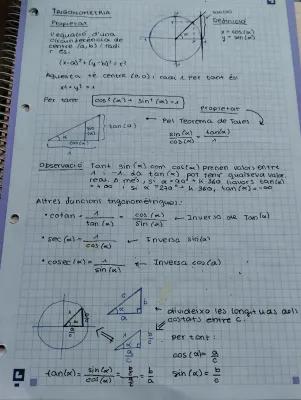 TRIGONOMETRIA
Propietat
Definició
L'equació d'una
circumferència de
centre (a,b) i radi
r és:
x = cos(α)
y = sin(α)
(x-a)² + (y-b)² = r²
Aquesta té centre (0,0) i radi 1 per tant és
x² + y² = 1
Per tant cos²(α) + sin²(α) = 1
Propietat
tan(α)
Pel Teorema de Tales
sin(α)/cos(α) = tan(α)/1
α
cos(α)
1
Observació Tant sin(α) com cos(α) prenen valors entre
1 i -1. La tan(α) pot tenir qualsevol valor
real. A més, si α=90°+k·360 llavors tan(α)
= +∞ i si α=270°+k·360, tan(α) = -∞
Altres funcions trigonomètriques:
• cotan = 1/tan(α) = cos(α)/sin(α) ← Inversa de Tan(α)
• sec(α) = 1/cos(α) ← Inversa sin(α)
• cosec(α) = 1/sin(α) ← Inversa cos(α)
c
b
α
a
← divideixo les longituds dels
costats entre c.
per tant:
cos(α) = a/c
tan(α) = sin(α)/cos(α) = b/a
sin(α) = b/c